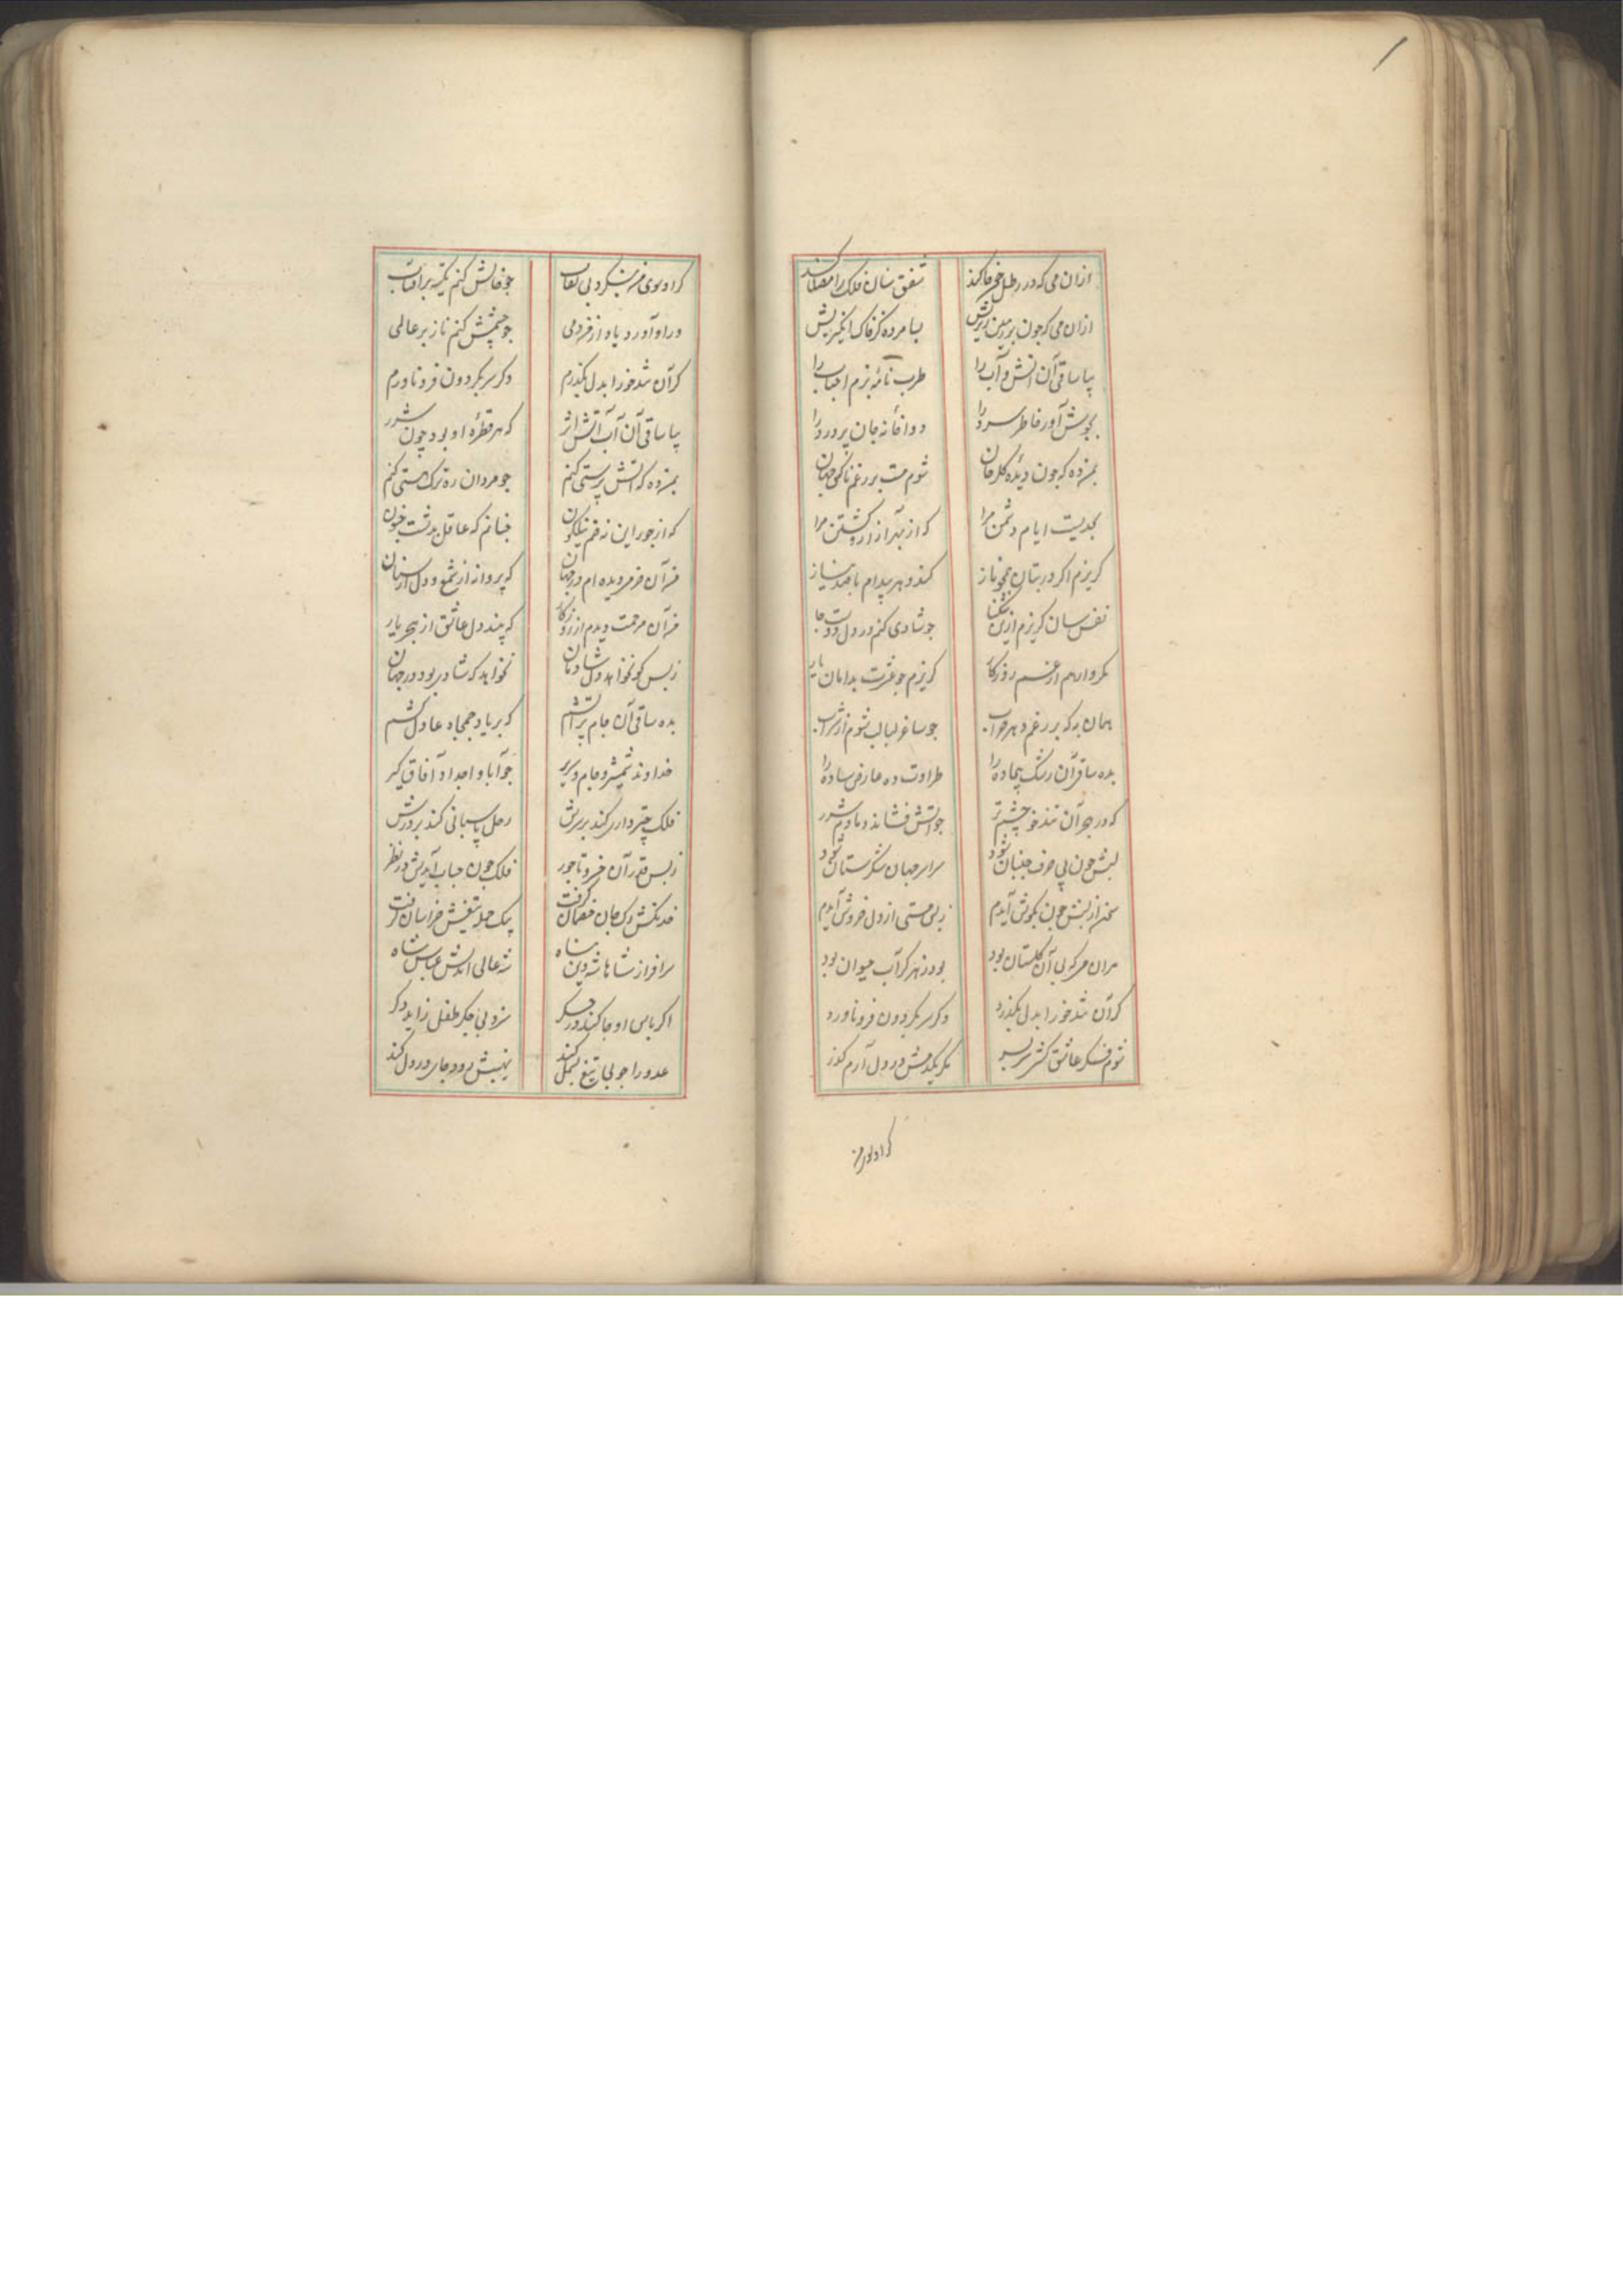 ازان می که در رطل چون جا کند شفق سان فلک را مصفا کند
ازان می که چون بر زمین ریزیش بسا مرده کز خاک انگیزیش
بیا ساقی آن آتش و آب را طرب نامهٔ بزم احباب را
بجوش آور خاطر سرد را دوا خانه جان پر درد را
بمن ده که چون دیدهٔ گلرخان شوم مست بر رغم ناکس جهان
بحدیست ایام دشمن مرا که از بهر آزار کشتن مرا
گریزم اگر در بتان همچو ناز کند دهر پیدام با صد نیاز
نفس سان گریزم ازین تنگنا چو شادی کنم در دل دوست جا
مگر وارهم از غم روزگار گریزم چو عشرت بدامان یار
همان به که بر رغم دهر خراب چو ساغر لبالب شوم از شراب
بده ساقی آن رشک بیجاده را طراوت ده عارض ساده را
که در هجر آن تندخو چشم تر چو آتش فشاند دمادم شرر
لبش چون پی حرف جنبان شود سراسر جهان شکرستان شود
سخن از لبش چون بگوش آیدم ز بس مستی از دل خروش آیدم
مران می که بی آن گلستان بود بود زهر گر آب حیوان بود
گر آن تندخو را بدل بگذرد دگر سر بگردون فرو ناورد
شوم فکر عاشق کشی سربسر مگر یکدمش در دل آرم گذر
گر او سوی من
گر او سوی من بنگرد بی نقاب چو خالش کنم تکیه بر آفتاب
ور او آورد یاد از من دمی چو چشمش کنم ناز بر عالمی
گر آن تندخو را بدل بگذرم دگر سر بگردون فرو ناورم
بیا ساقی آن آب آتش اثر که هر قطرهٔ او بود چون شرر
بمن ده که آتش پرستی کنم چو مردان ره ترک هستی کنم
که از جور این نه خم نیلگون چنانم که عاقل بدشت جنون
من آن خرمی دیده ام در جهان که پروانه از شمع و دل از بتان
من آن مرحمت دیدم از روزگار که بیند دل عاشق از هجر یار
ز بس کو نخواهد دل شادمان نخواهد که شادی بود در جهان
بده ساقی آن جام پر آتشم که بر یاد جمجاه عادل کشم
خداوند شمشیر و جام و سریر چو آبا و اجداد آفاق گیر
فلک چتر داری کند بر سرش زحل پاسبانی کند بر درش
ز بس قدر آن خسرو تاجور فلک چون حباب آیدش در نظر
خدنگش دل و جان خصمان گرفت بیک حمله تیغش خراسان گرفت
سرافراز شاهان شه دین پناه شه عالی اندیش عباس شاه
اگر یاس او جا کند در جگر سزد بی جگر طفل زاید دگر
عدو را چو بی تیغ بسمل کند نهیبش رود جای در دل کند